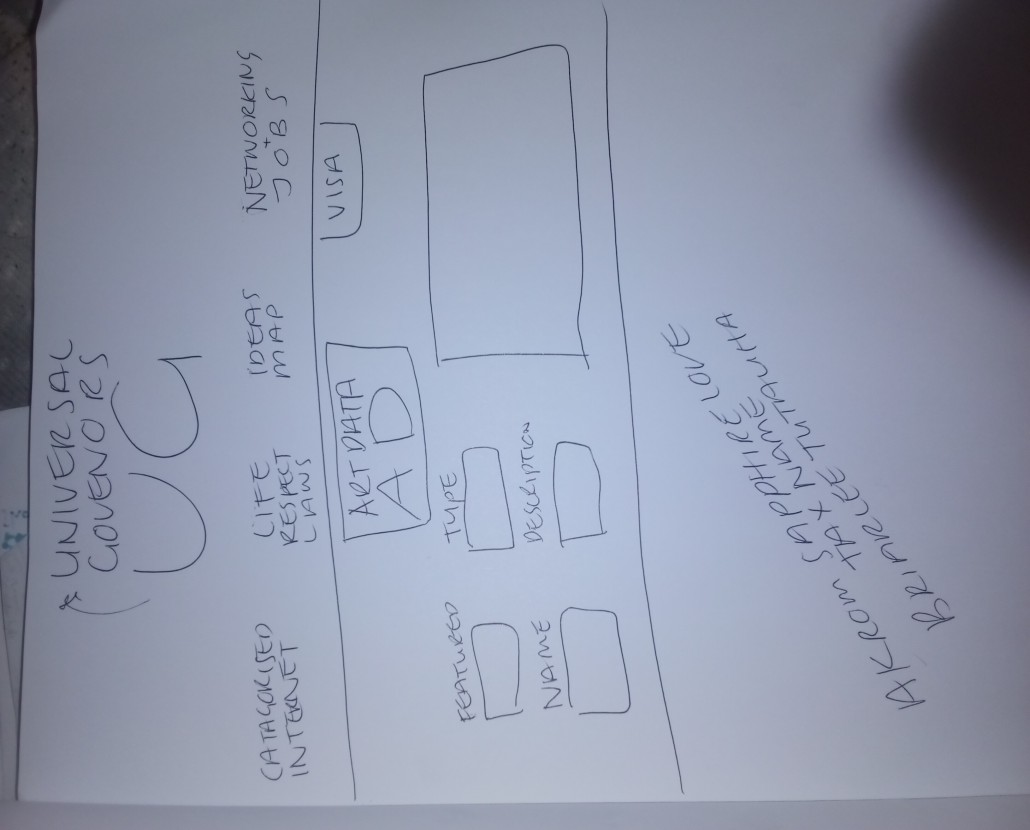 UNIVERSAL
GOVENORS
UG
CATAGORISED
INTERNET
LIFE
RESPECT
LAWS
IDEAS
MAP
NETWORKING
+
JOBS
ART DATA
AD
VISA
FEATURED
TYPE
NAME
DESCRIPTION
AKROM SAPPHIRE LOVE
TAX NAME
BRIARLEE TUTAUHA